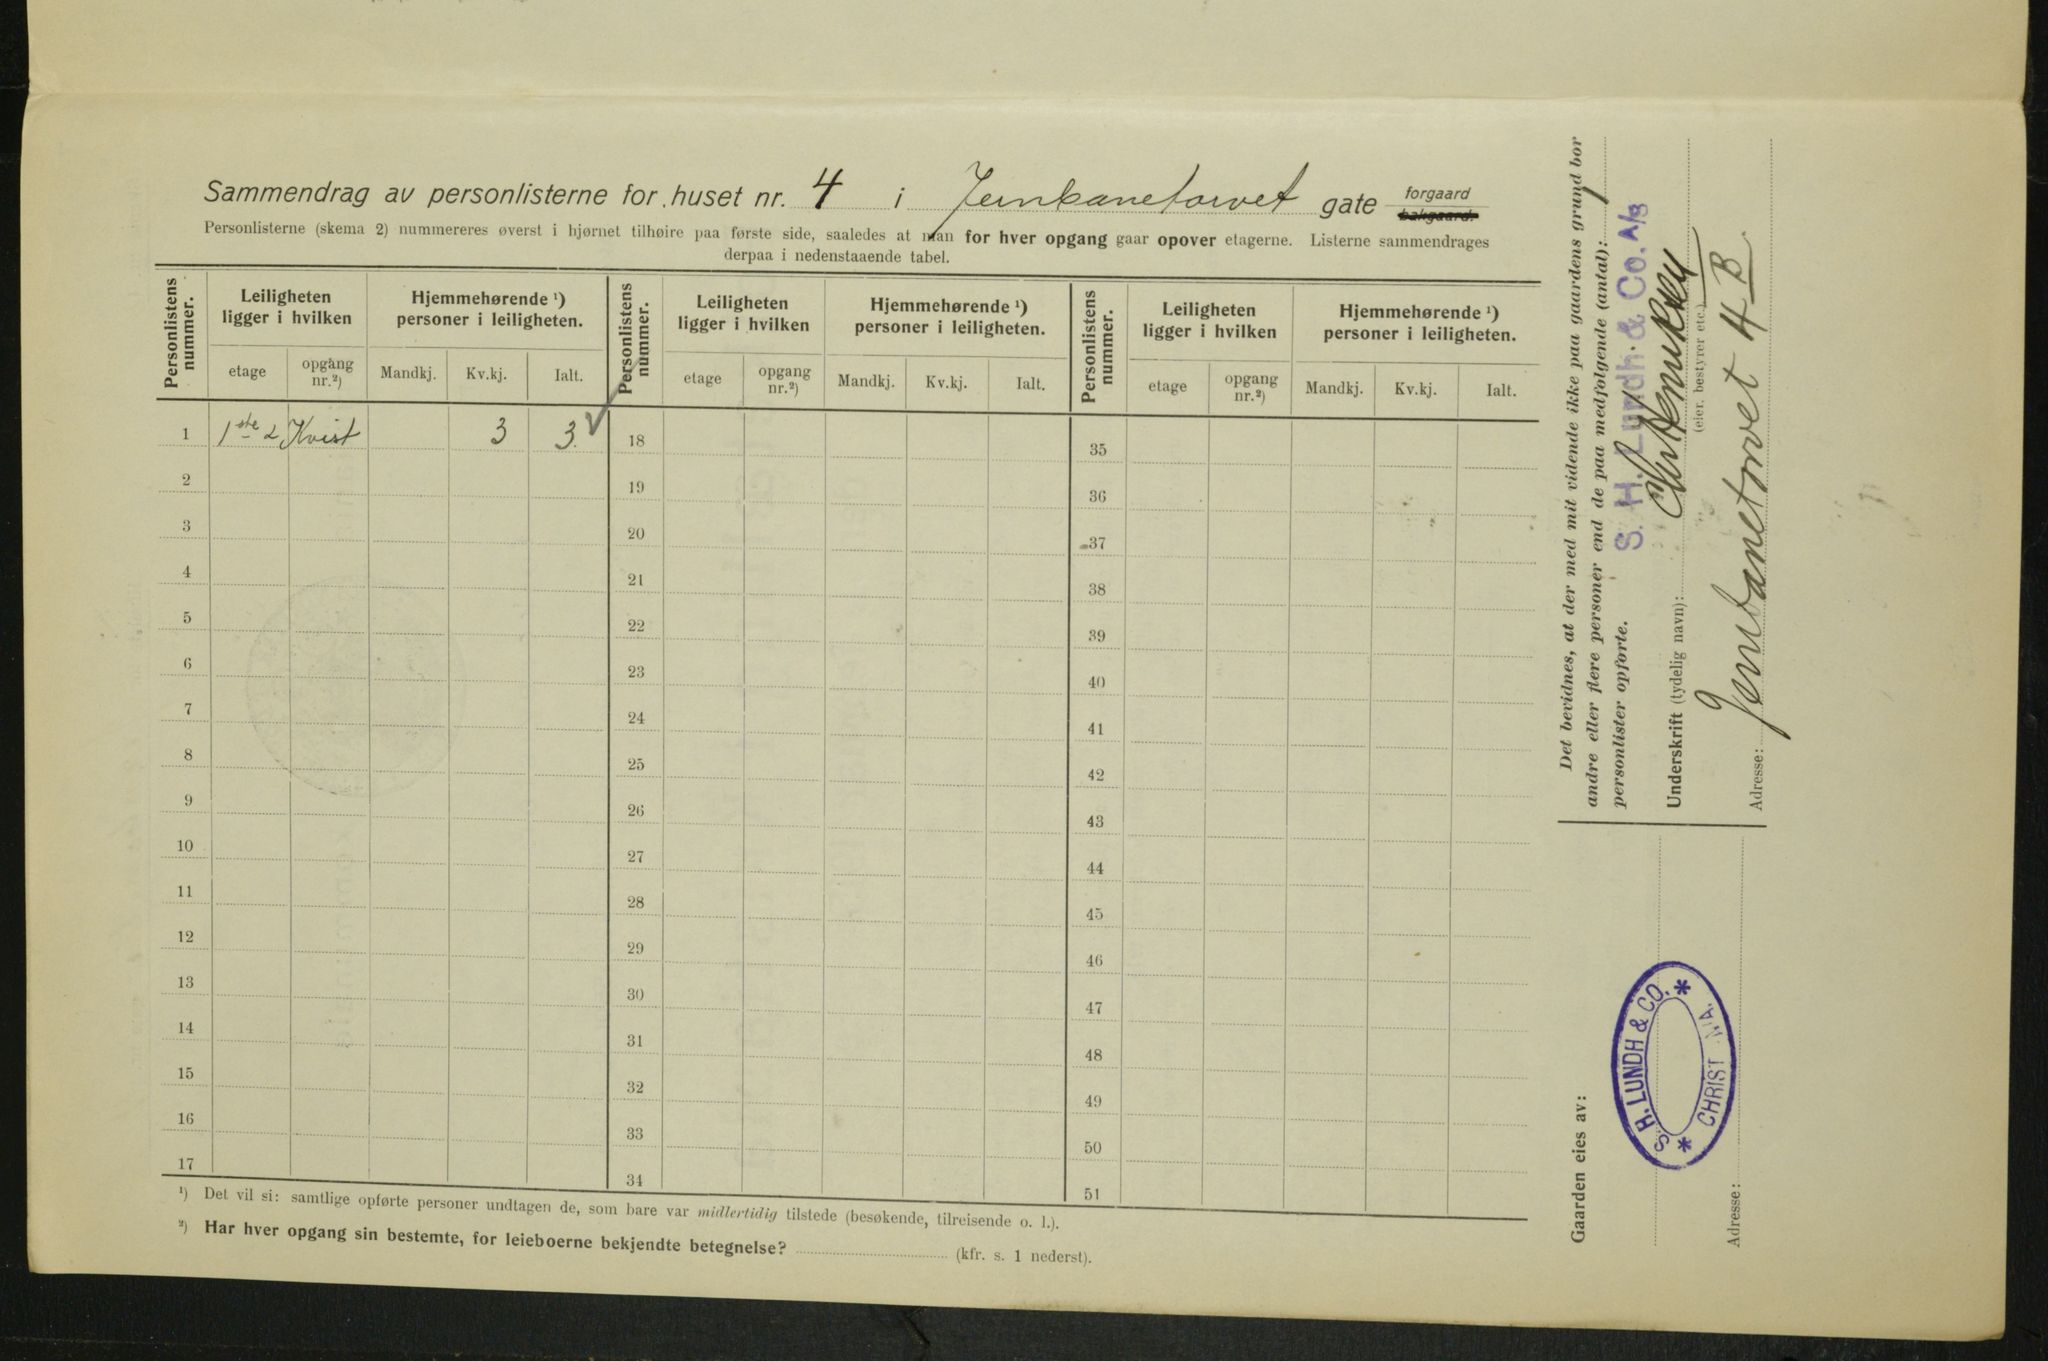 Sammendrag av personlisterne for huset nr. 4 i Jernbanetorvet gate forgaard bakgaard.
Personlisterne (skema 2) nummereres øverst i hjørnet tilhøire paa første side, saaledes at man for hver opgang gaar opover etagerne. Listerne sammendrages
derpaa i nedenstaaende tabel.
Personlistens nummer. Leiligheten ligger i hvilken Hjemmehørende ¹) personer i leiligheten. Personlistens nummer. Leiligheten ligger i hvilken Hjemmehørende ¹) personer i leiligheten. Personlistens nummer. Leiligheten ligger i hvilken Hjemmehørende ¹) personer i leiligheten.
etage opgang nr.²) Mandkj. Kv.kj. Ialt. etage opgang nr.²) Mandkj. Kv.kj. Ialt. etage opgang nr.²) Mandkj. Kv.kj. Ialt.
1 1ste Kvist 3 3. 18 35
2 19 36
3 20 37
4 21 38
5 22 39
6 23 40
7 24 41
8 25 42
9 26 43
10 27 44
11 28 45
12 29 46
13 30 47
14 31 48
15 32 49
16 33 50
17 34 51
¹) Det vil si: samtlige opførte personer undtagen de, som bare var midlertidig tilstede (besøkende, tilreisende o. l.).
²) Har hver opgang sin bestemte, for leieboerne bekjendte betegnelse? (kfr. s. 1 nederst).
Det bevidnes, at der med mit vidende ikke paa gaardens grund bor
andre eller flere personer end de paa medfølgende (antal): 1
personlister opførte.
S. H. Lundh & Co. A/S
Underskrift (tydelig navn):
(eier, bestyrer etc.)
Jernbanetorvet 4 B.
Adresse:
Gaarden eies av:
S. H. LUNDH & CO.
CHRISTIANIA.
Adresse: